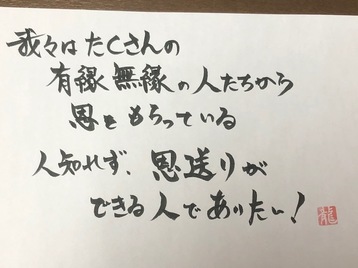 我々はたくさんの
有縁無縁の人たちから
恩をもらっている
人知れず、恩送りが
できる人でありたい!
龍